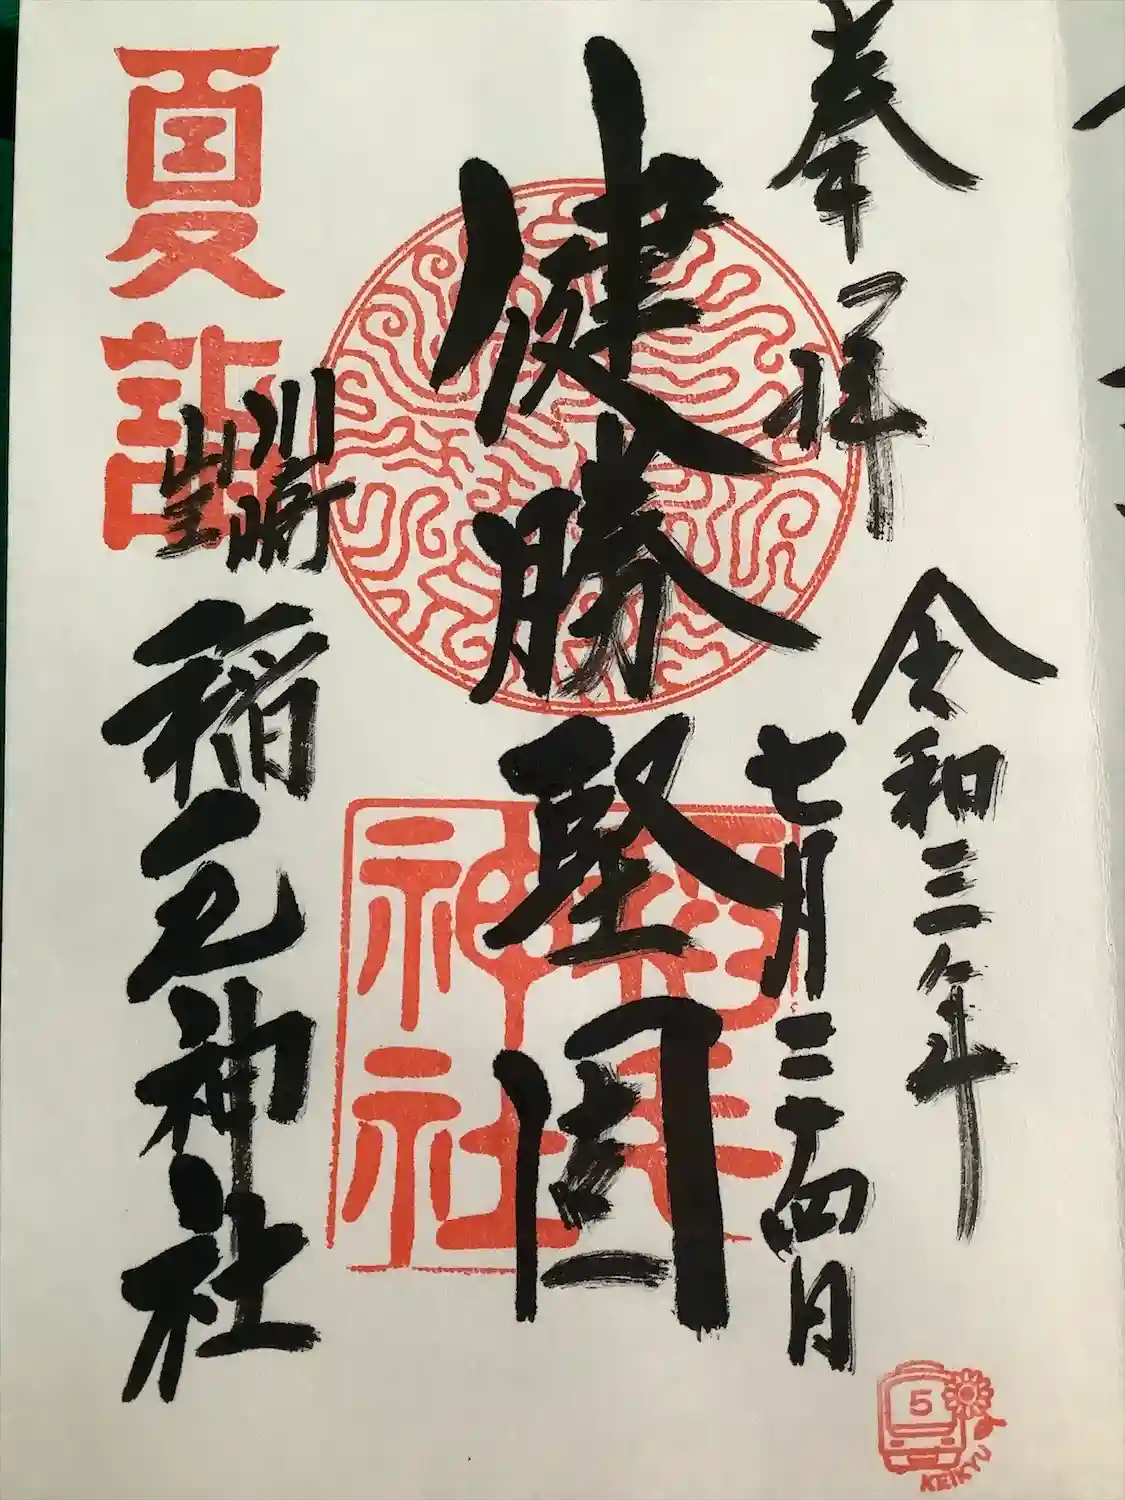 奉拝
令和三年
七月二十四日
健勝堅固
川崎
山王
稲毛神社
夏詣
稲毛
神社
5
KEIKYU